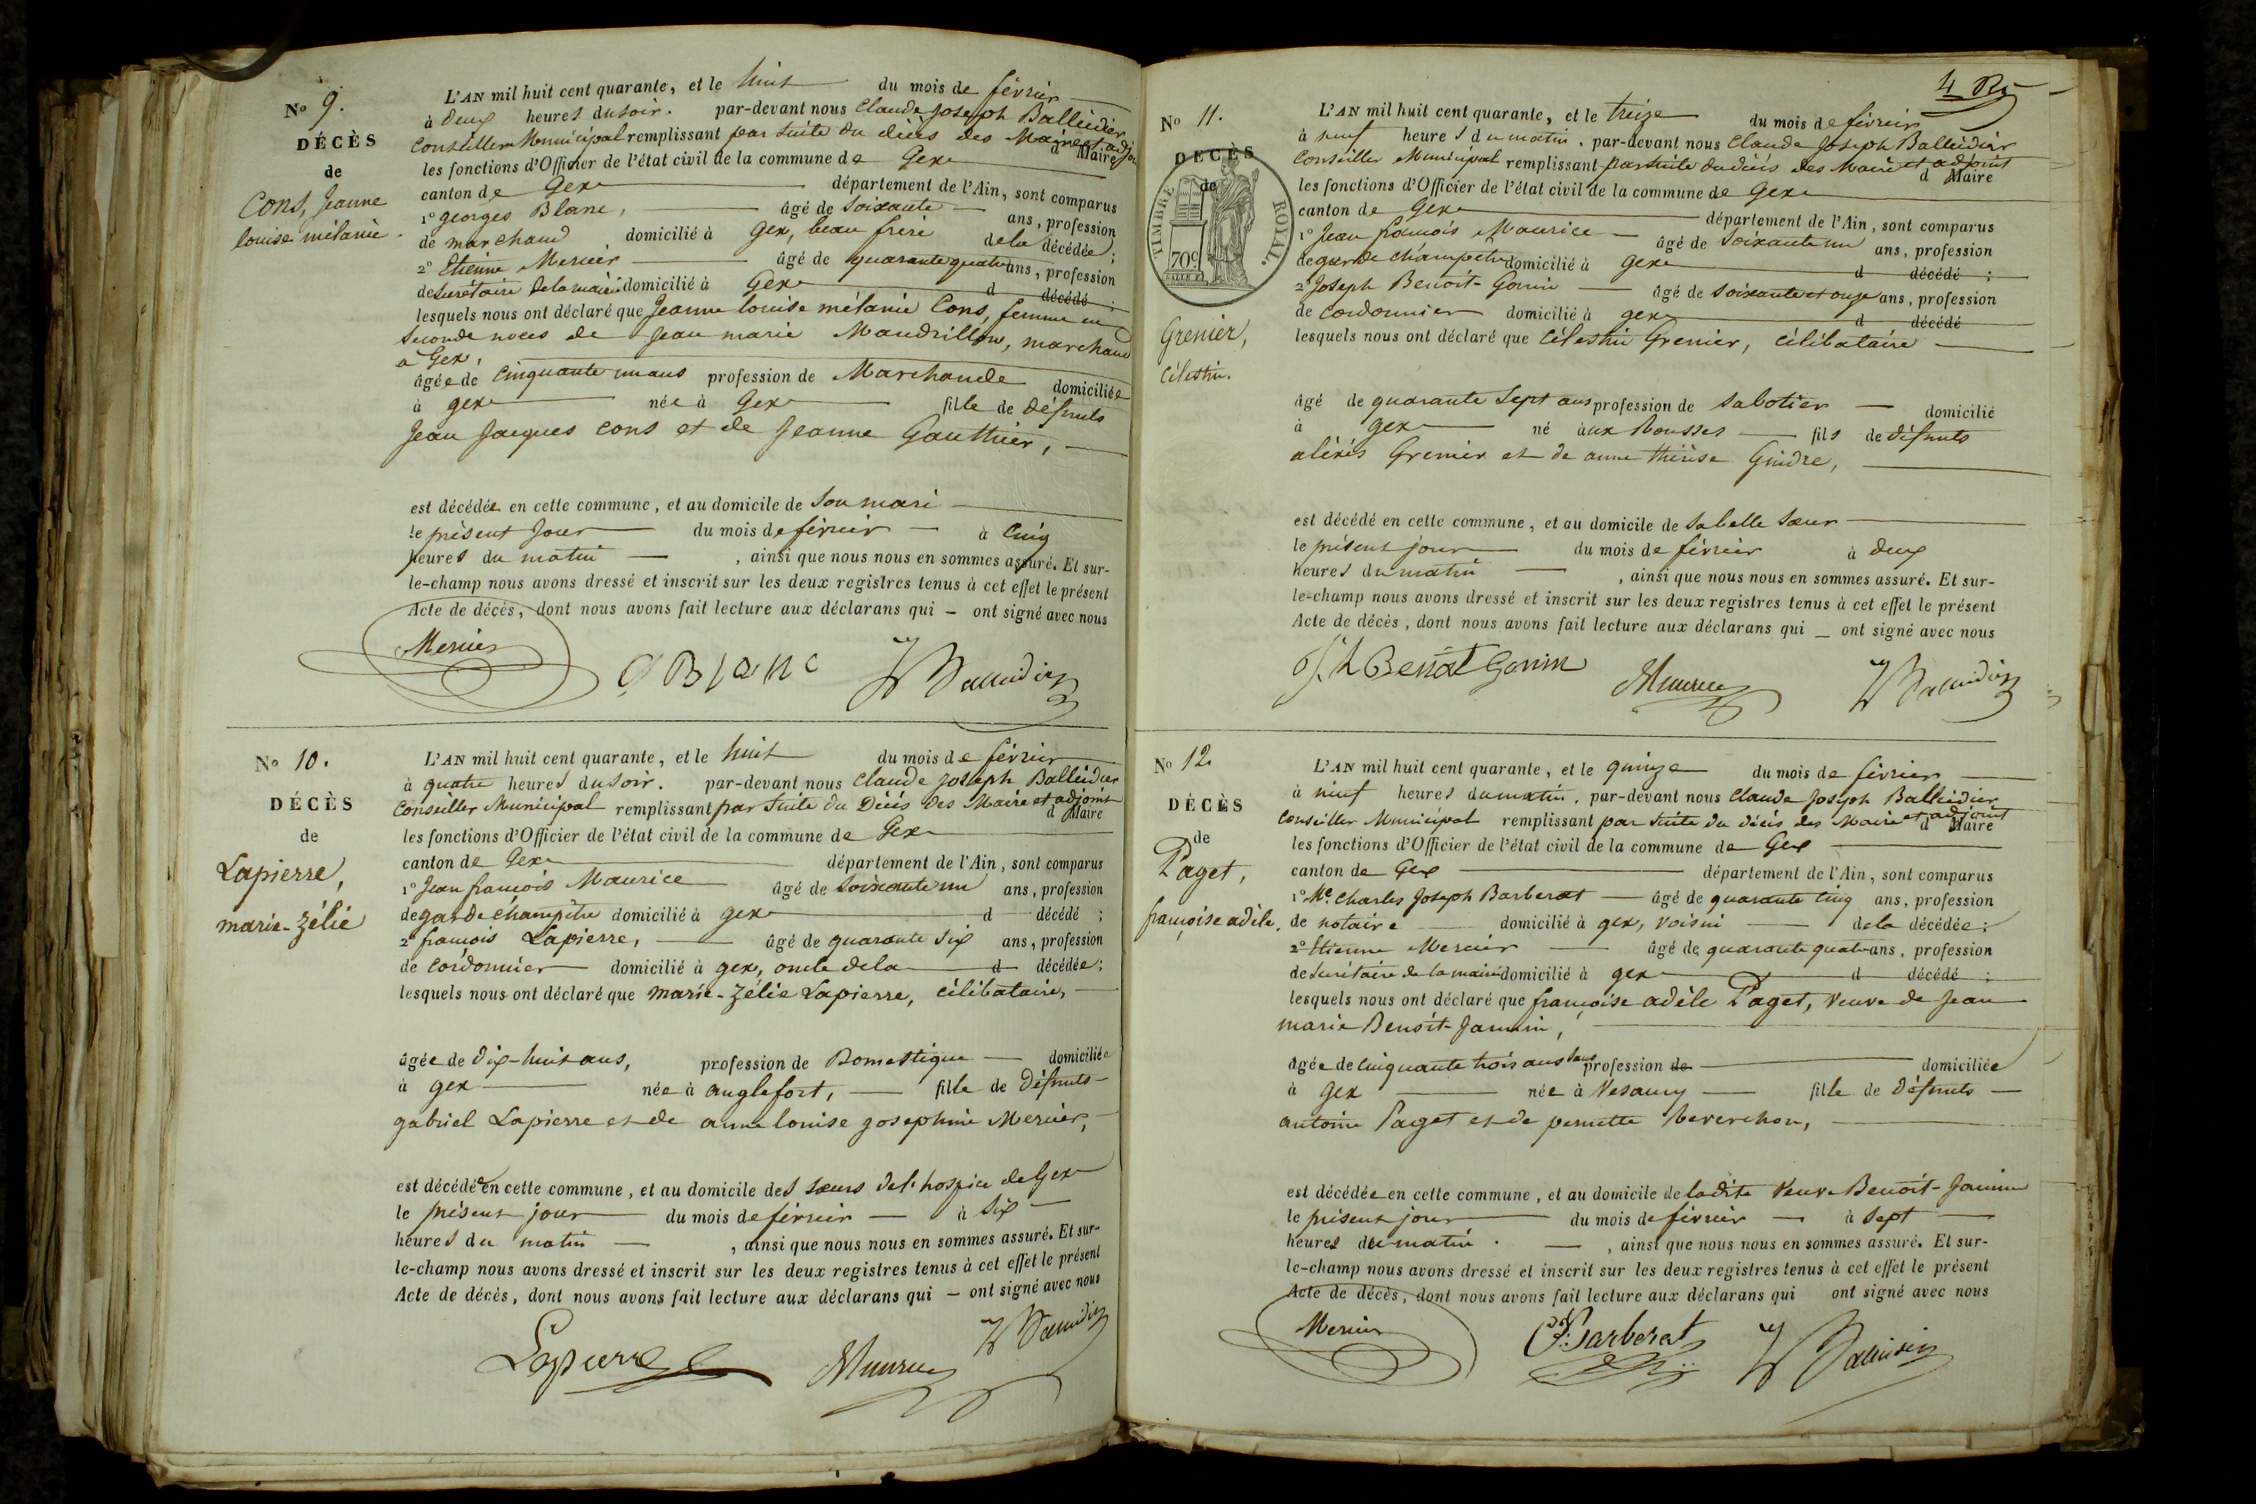 No 9.
DÉCÈS
de
Cons, Jeanne
louise mélanie.
L'AN mil huit cent quarante, et le huit du mois de février
à deux heures du soir. par-devant nous Claude Joseph Balleidier
Conseiller Municipal remplissant par suite du décès des Maire et adjoint d Maire
les fonctions d'Officier de l'état civil de la commune de Gex
canton de Gex département de l'Ain, sont comparus
1º georges Blanc, âgé de soixante ans, profession
de marchand domicilié à Gex, beau frère de la décédée;
2º Etienne Mercier âgé de quarante quatre ans, profession
de Secrétaire de la mairie domicilié à Gex d décédé;
lesquels nous ont déclaré que Jeanne louise mélanie Cons, femme en
seconde noces de Jean marie Maudrillon, marchand
à Gex,
âgée de cinquante un ans profession de Marchande domiciliée
à gex née à Gex fille de défunts
Jean Jacques Cons et de Jeanne Gauthier,
est décédée en cette commune, et au domicile de son mari
le présent jour du mois de février à cinq
heures du matin, ainsi que nous nous en sommes assuré. Et sur-
le-champ nous avons dressé et inscrit sur les deux registres tenus à cet effet le présent
Acte de décès, dont nous avons fait lecture aux déclarans qui – ont signé avec nous
Mercier
G Blanc Balleidier
No 10.
DÉCÈS
de
Lapierre,
marie-Zélie
L'AN mil huit cent quarante, et le huit du mois de février
à quatre heures du soir. par-devant nous Claude Joseph Balleidier
Conseiller Municipal remplissant par suite du Décès des Maire et adjoint d Maire
les fonctions d'Officier de l'état civil de la commune de Gex
canton de Gex département de l'Ain, sont comparus
1º Jean françois Maurice âgé de soixante un ans, profession
de garde champêtre domicilié à gex d décédé;
2º françois Lapierre, âgé de quarante six ans, profession
de cordonnier domicilié à gex, oncle de la d décédée;
lesquels nous ont déclaré que marie-Zélie Lapierre, célibataire,
âgée de dix-huit ans, profession de Domestique domiciliée
à gex née à anglefort, fille de défunts
gabriel Lapierre et de anne louise Josephine Mercier,
est décédée en cette commune, et au domicile des sœurs de l'hospice de Gex
le présent jour du mois de février à six
heures du matin, ainsi que nous nous en sommes assuré. Et sur-
le-champ nous avons dressé et inscrit sur les deux registres tenus à cet effet le présent
Acte de décès, dont nous avons fait lecture aux déclarans qui – ont signé avec nous
Lapierre Maurice Balleidier
4
No 11.
DÉCÈS
de
TIMBRE ROYAL.
70c
Grenier,
Célestin.
L'AN mil huit cent quarante, et le treize du mois de février
à neuf heures du matin, par-devant nous Claude Joseph Balleidier
Conseiller Municipal remplissant par suite du décès des Maire et adjoint d Maire
les fonctions d'Officier de l'état civil de la commune de Gex
canton de Gex département de l'Ain, sont comparus
1º Jean françois Maurice âgé de soixante un ans, profession
de garde champêtre domicilié à gex d décédé;
2º Joseph Benoit-Gonin âgé de soixante et onze ans, profession
de cordonnier domicilié à gex d décédé
lesquels nous ont déclaré que Célestin Grenier, célibataire
âgé de quarante sept ans profession de sabotier domicilié
à gex né aux Rousses fils de défunts
aléxis Grenier et de anne thérèse Gindre,
est décédé en cette commune, et au domicile de sa belle sœur
le présent jour du mois de février à deux
heures du matin, ainsi que nous nous en sommes assuré. Et sur-
le-champ nous avons dressé et inscrit sur les deux registres tenus à cet effet le présent
Acte de décès, dont nous avons fait lecture aux déclarans qui – ont signé avec nous
Benoit Gonin Maurice Balleidier
No 12.
DÉCÈS
de
Paget,
françoise adèle,
L'AN mil huit cent quarante, et le quinze du mois de février
à neuf heures du matin, par-devant nous Claude Joseph Balleidier
Conseiller Municipal remplissant par suite du décès des Maire et adjoint d Maire
les fonctions d'Officier de l'état civil de la commune de Gex
canton de Gex département de l'Ain, sont comparus
1º Me. Charles Joseph Barberat âgé de quarante cinq ans, profession
de notaire domicilié à gex, voisin de la décédée;
2º Etienne Mercier âgé de quarante quatre ans, profession
de Secrétaire de la mairie domicilié à gex d décédé;
lesquels nous ont déclaré que françoise adèle Paget, veuve de Jean
marie Benoit-Jannin,
âgée de cinquante trois ans sans profession de domiciliée
à gex née à Vesancy fille de défunts
antoine Paget et de pernette
est décédée en cette commune, et au domicile de ladite veuve Benoit-Jannin
le présent jour du mois de février à sept
heures du matin., ainsi que nous nous en sommes assuré. Et sur-
le-champ nous avons dressé et inscrit sur les deux registres tenus à cet effet le présent
Acte de décès, dont nous avons fait lecture aux déclarans qui ont signé avec nous
Mercier Barberat Balleidier